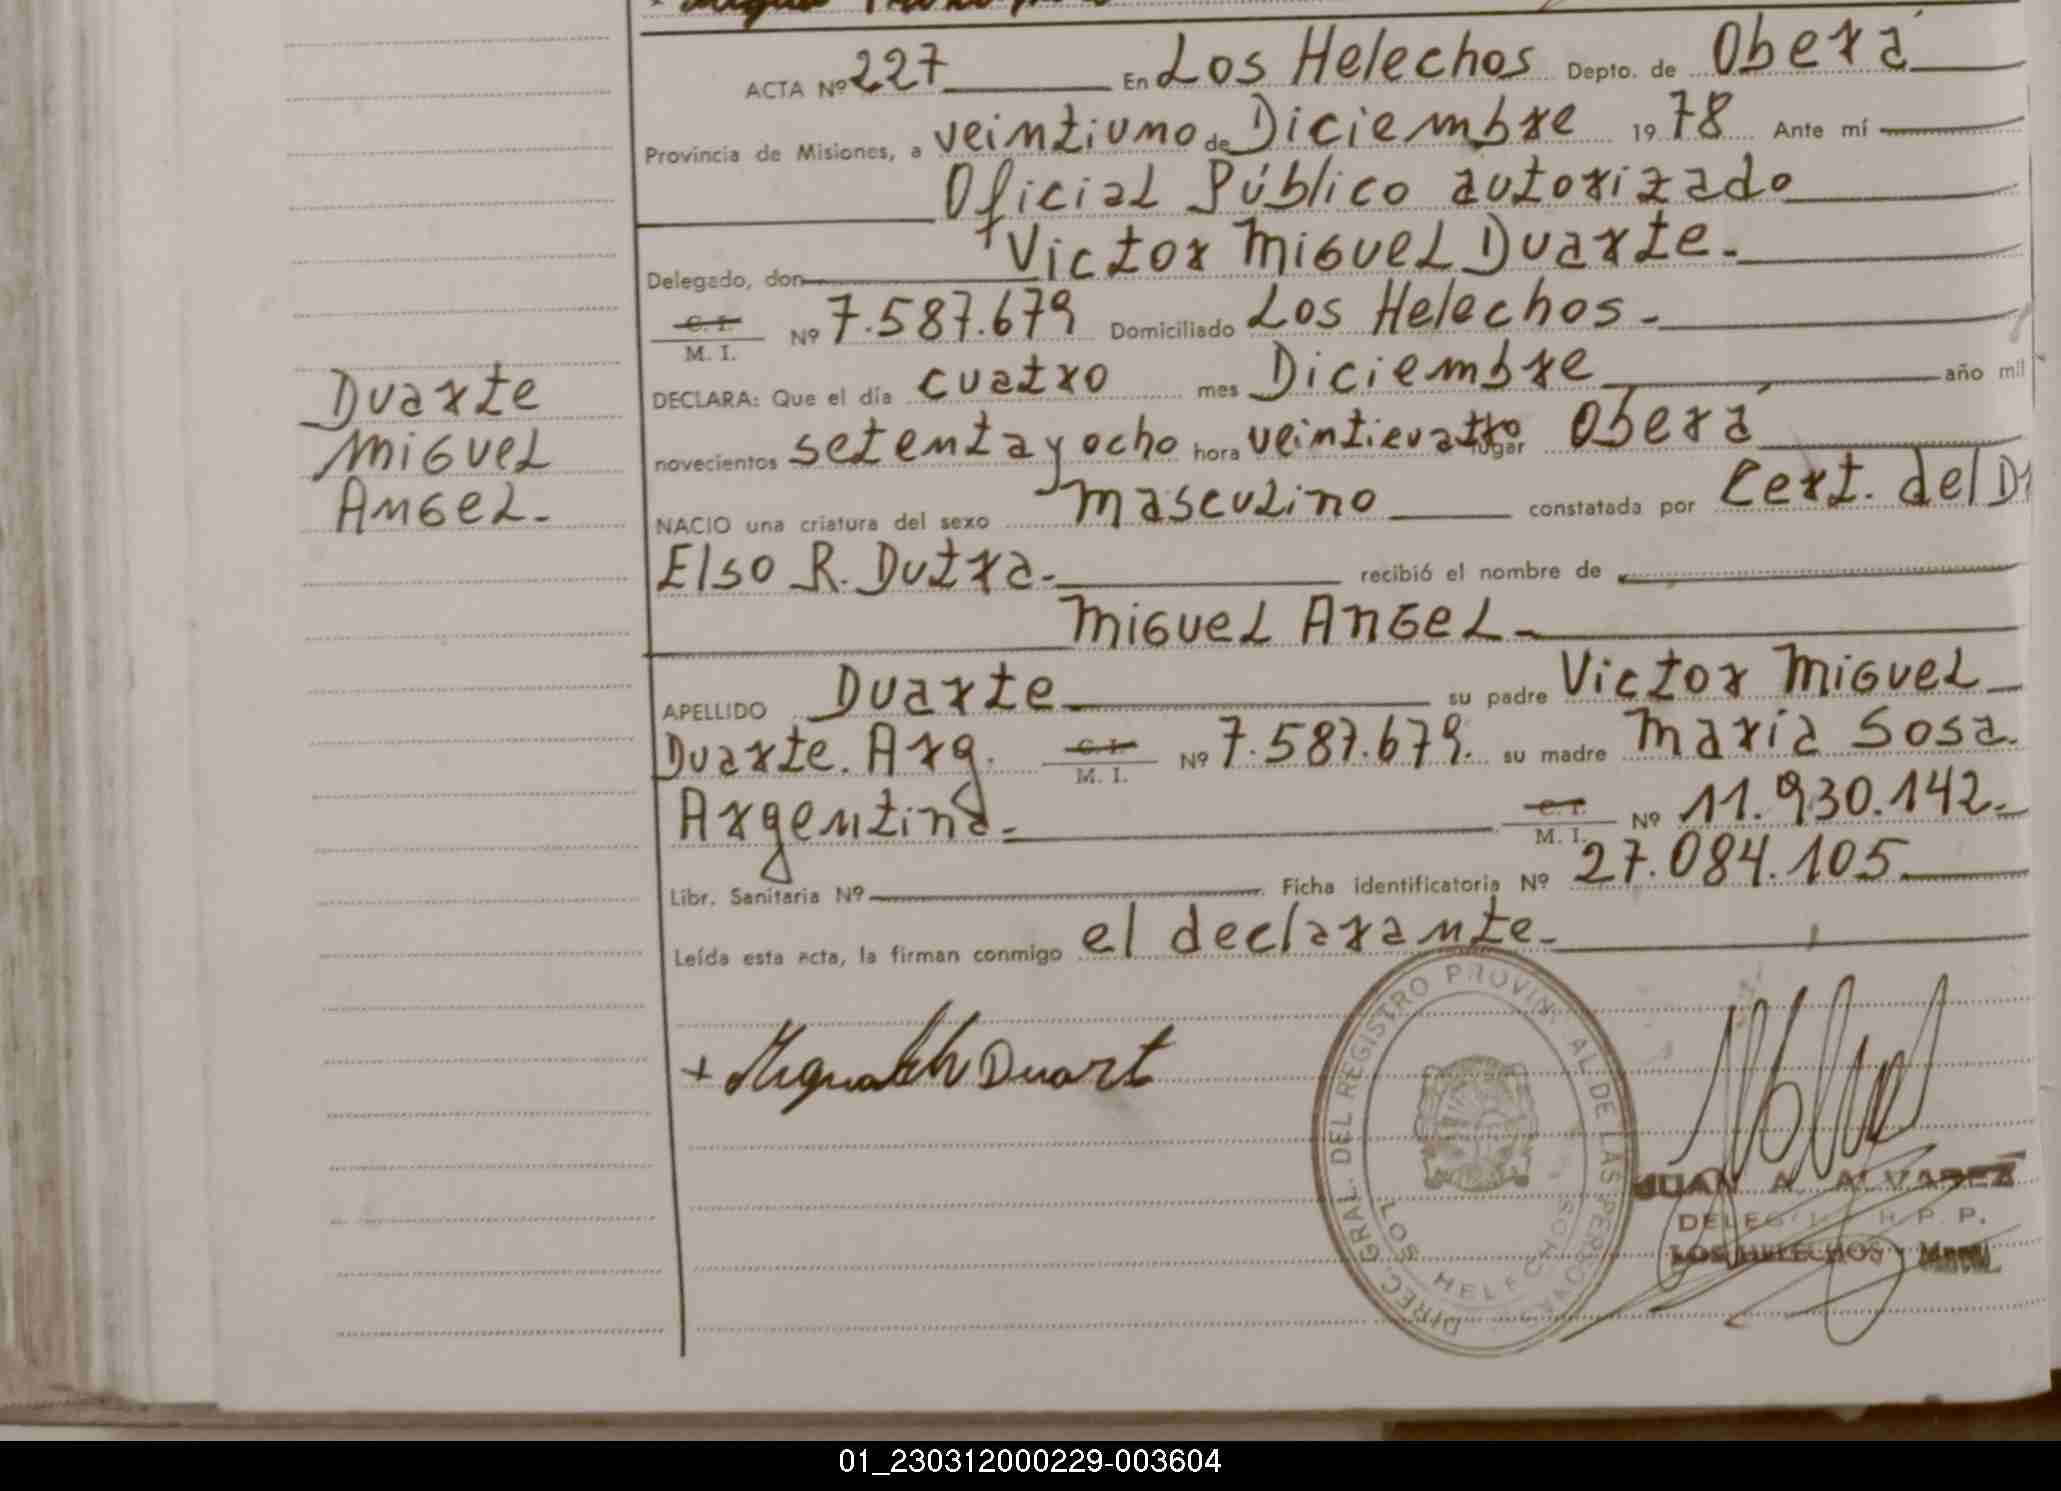 ACTA Nº 227 En Los Helechos Depto. de Oberá
Provincia de Misiones, a veintiuno de Diciembre 1978 Ante mí
Oficial Público autorizado
Delegado, don Victor Miguel Duarte.
C. I. / M. I. Nº 7.587.679 Domiciliado Los Helechos.
DECLARA: Que el día cuatro mes Diciembre año mil
novecientos setenta y ocho hora veinticuatro lugar Oberá
NACIO una criatura del sexo masculino constatada por Cert. del D
Elso R. Dutra. recibió el nombre de
Miguel Angel
APELLIDO Duarte su padre Victor Miguel
Duarte. Arg. C. I. / M. I. Nº 7.587.679. su madre Maria Sosa.
Argentina. C. I. / M. I. Nº 11.930.142.
Libr. Sanitaria Nº Ficha identificatoria Nº 27.084.105
Leída esta acta, la firman conmigo el declarante.
Duarte
Miguel
Angel.
+ Duart
DIREC. GRAL. DEL REGISTRO PROVINCIAL DE LAS PERSONAS
LOS HELECHOS
JUAN A. ALVAREZ
DELEGADO R. P. P.
LOS HELECHOS
01_230312000229-003604